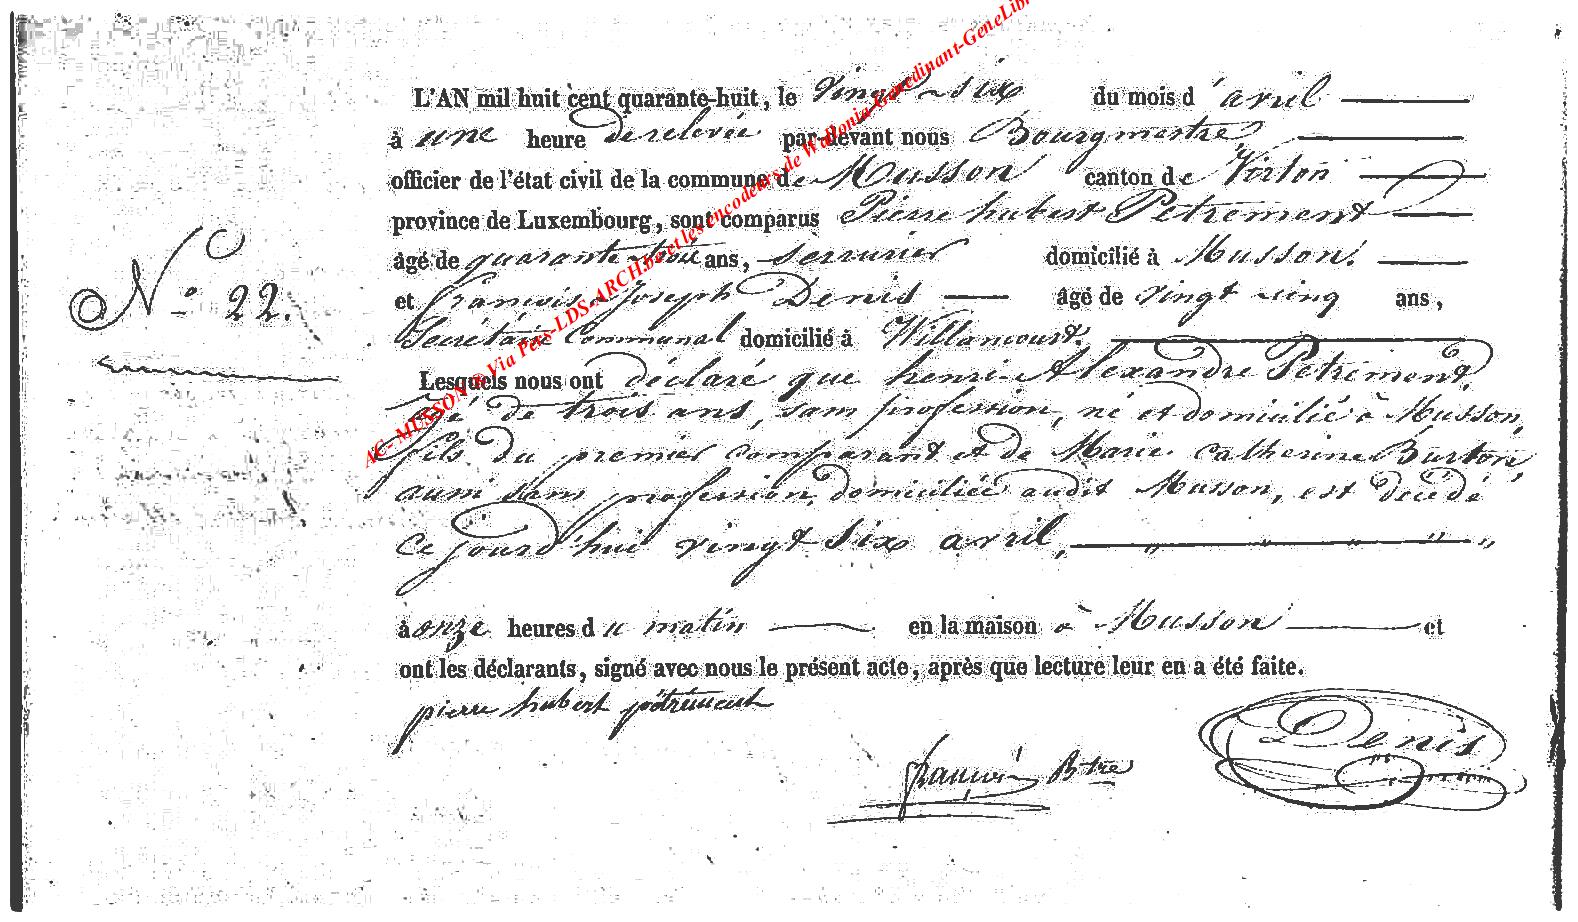 L'AN mil huit cent quarante-huit, le vingt-six du mois d'avril
à une heure de relevée par-devant nous Bourgmestre,
officier de l'état civil de la commune de Musson canton de Virton
province de Luxembourg, sont comparus Pierre hubert Pétrement
âgé de quarante-trois ans, serrurier domicilié à Musson.
et François-Joseph Denis âgé de vingt-cinq ans,
N° 22.
Secrétaire Communal domicilié à Willancourt.
Lesquels nous ont déclaré que henri-Alexandre Pétrement,
âgé de trois ans, sans profession, né et domicilié à Musson,
fils du premier comparant et de Marie Catherine Burton,
aussi sans profession, domiciliée audit Musson, est décédé
ce jourd'hui vingt six avril, " " " " "
à onze heures du matin en la maison à Musson et
ont les déclarants, signé avec nous le présent acte, après que lecture leur en a été faite.
pierre hubert pétrement
Denis
Btre
AC-MUSSON © Via Pers-LDS-ARCH.be et les encodeurs de Wallonia-Gardinant-GeneLibr